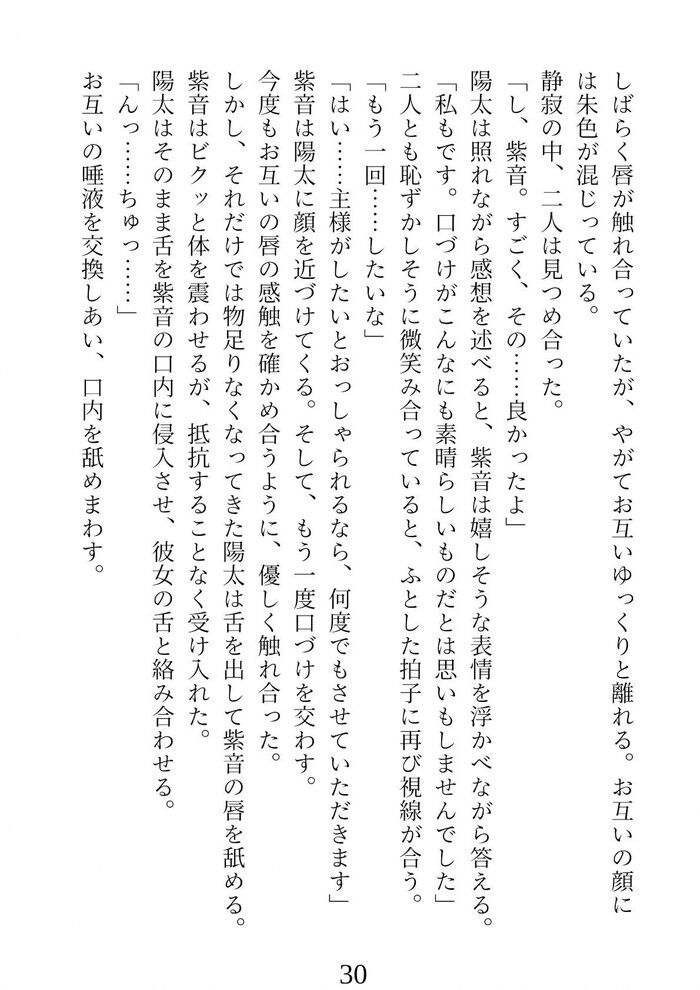 しばらく唇が触れ合っていたが、やがてお互いゆっくりと離れる。お互いの顔に
は朱色が混じっている。
静寂の中、二人は見つめ合った。
「し、紫音。すごく、その……良かったよ」
陽太は照れながら感想を述べると、紫音は嬉しそうな表情を浮かべながら答える。
「私もです。口づけがこんなにも素晴らしいものだとは思いもしませんでした」
二人とも恥ずかしそうに微笑み合っていると、ふとした拍子に再び視線が合う。
「もう一回……したいな」
「はい……主様がしたいとおっしゃられるなら、何度でもさせていただきます」
紫音は陽太に顔を近づけてくる。そして、もう一度口づけを交わす。
今度もお互いの唇の感触を確かめ合うように、優しく触れ合った。
しかし、それだけでは物足りなくなってきた陽太は舌を出して紫音の唇を舐める。
紫音はビクッと体を震わせるが、抵抗することなく受け入れた。
陽太はそのまま舌を紫音の口内に侵入させ、彼女の舌と絡み合わせる。
「んっ……ちゅっ……」
お互いの唾液を交換しあい、口内を舐めまわす。
30